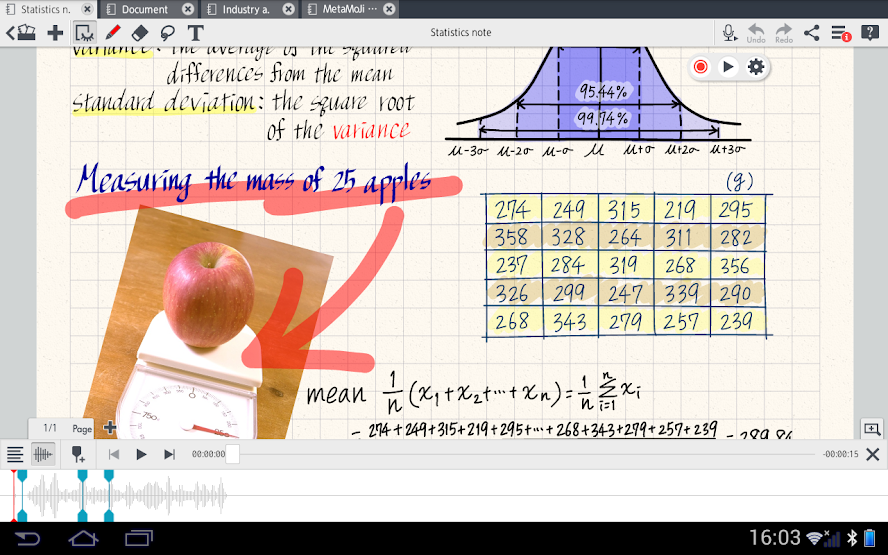 Statistics n.
Document
Industry a.
MetaMoJi ...
Statistics note
Undo
Redo
variance: the average of the squared
differences from the mean
standard deviation: the square root
of the variance
95.44%
99.74%
μ-3σ μ-2σ μ-σ μ μ+σ μ+2σ μ+3σ
Measuring the mass of 25 apples
(g)
274 249 315 219 295
358 328 264 311 282
237 284 319 268 356
326 299 247 339 290
268 343 279 257 239
0
750
mean 1/n (x₁+x₂+...+xₙ) = 1/n Σ xᵢ
n
i=1
= 274+249+315+219+295+...+268+343+279+257+239 = 289.84
1/1 Page
00:00:00
-00:00:15
16:03